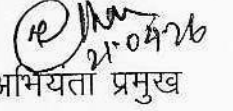 21.04.26
अभियंता प्रमुख